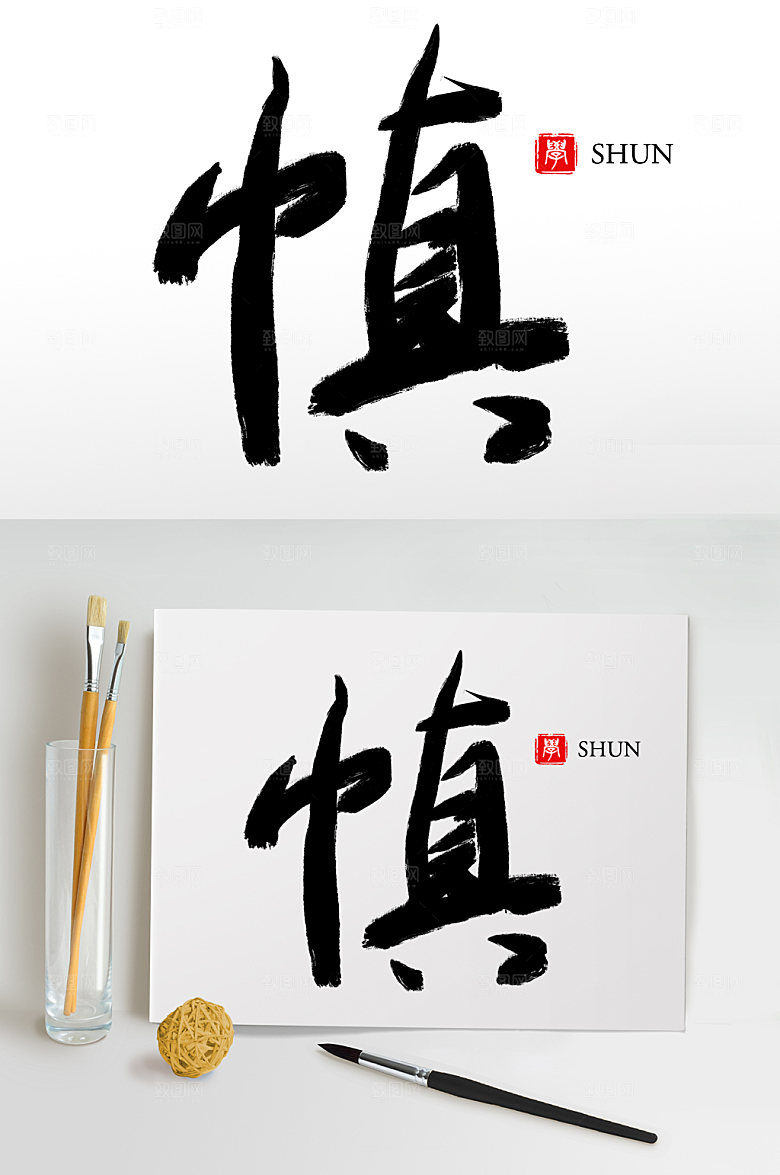 慎
學 SHUN
慎
學 SHUN